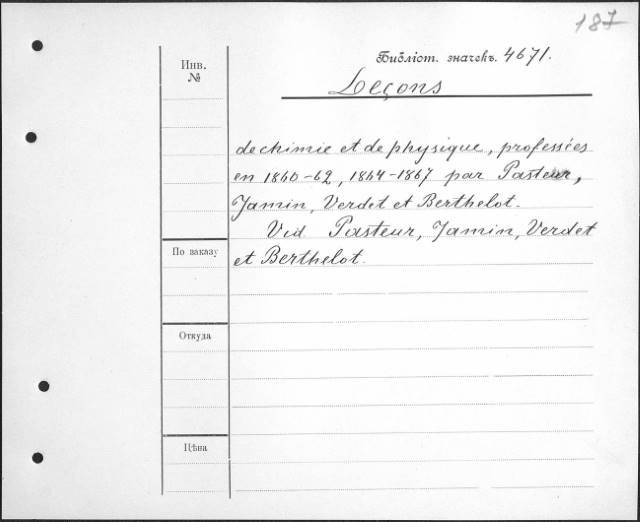 187
Библіот. значекъ. 4671.
Инв.
№
Leçons
de chimie et de physique, professées
en 1860-62, 1864-1867 par Pasteur,
Jamin, Verdet et Berthelot.
Vid. Pasteur, Jamin, Verdet
et Berthelot.
По заказу
Откуда
Цѣна